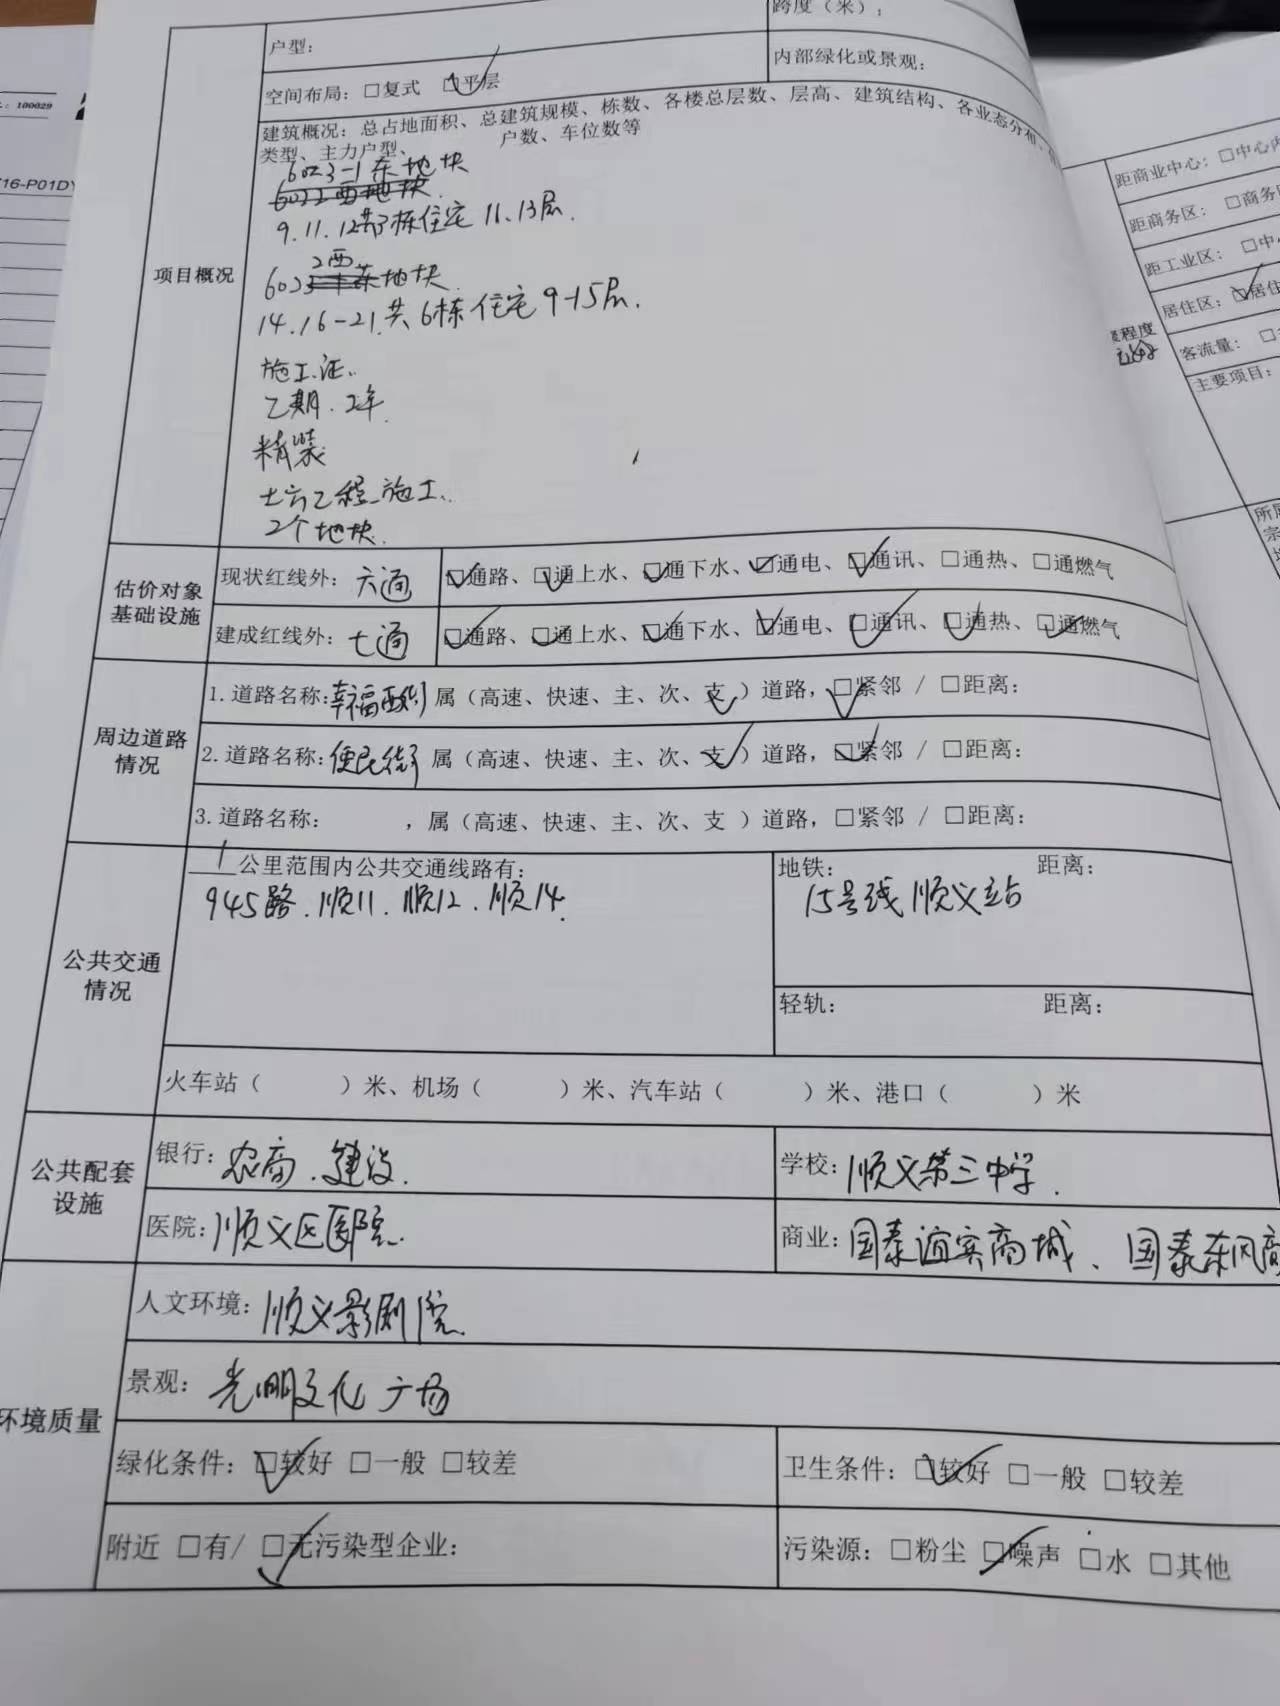 跨度（米）:
户型:
内部绿化或景观:
空间布局: □复式 ☑平层
建筑概况: 总占地面积、总建筑规模、栋数、各楼总层数、层高、建筑结构、各业态分布、
类型、主力户型、 户数、车位数等
6023-1东地块
6022西地块
9.11.12共3栋住宅 11.13层.
项目概况
2西
602 地块
14.16-21.共6栋住宅9-15层.
施工证.
乙期.2年
精装
施工.
2个地块.
估价对象
基础设施
现状红线外: 六通
☑通路、☑通上水、☑通下水、☑通电、☑通讯、□通热、□通燃气
建成红线外: 七通
☑通路、☑通上水、☑通下水、☑通电、☑通讯、☑通热、☑通燃气
周边道路
情况
1.道路名称:幸福西街 属（高速、快速、主、次、支 ）道路, ☑紧邻 / □距离:
2.道路名称:便民街 属（高速、快速、主、次、支 ）道路, ☑紧邻 / □距离:
3.道路名称: , 属（高速、快速、主、次、支 ）道路, □紧邻 / □距离:
公共交通
情况
1 公里范围内公共交通线路有:
945路.顺11.顺12.顺14.
地铁: 距离:
15号线顺义站
轻轨: 距离:
火车站（ ）米、机场（ ）米、汽车站（ ）米、港口（ ）米
公共配套
设施
银行: 农商.建设.
学校: 顺义第三中学.
医院: 顺义区医院.
商业: 国泰谊宾商城、国泰东风商
环境质量
人文环境: 顺义影剧院.
景观: 光明文化广场
绿化条件: ☑较好 □一般 □较差
卫生条件: ☑较好 □一般 □较差
附近 □有/ ☑无污染型企业:
污染源: □粉尘 ☑噪声 □水 □其他
100029
16-P01DY
距商业中心: □中心内
距商务区: □商务
距工业区: □中
居住区: ☑居住
程度
客流量: □
主要项目:
所属